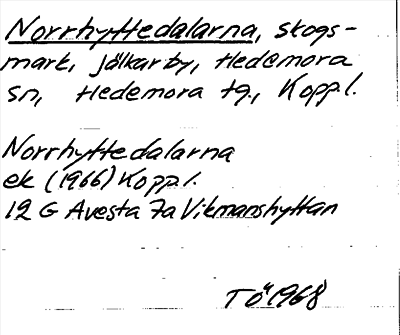 Norrhyttedalarna, skogs-
mark, Jälkarby, Hedemora
sn, Hedemora tg., Koppl.
Norrhyttedalarna
ek (1966) Koppl.
12 G Avesta 7a Vikmanshyttan
TÖ 1968